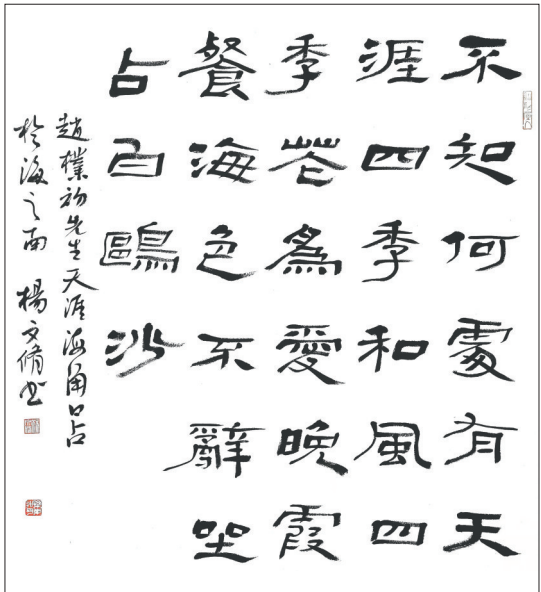 不知何處有天
涯四季和風四
季花爲愛晚霞
餐海色不辭坐
占白鷗沙
趙樸初先生天涯海角口占
於海之南 楊文脩書